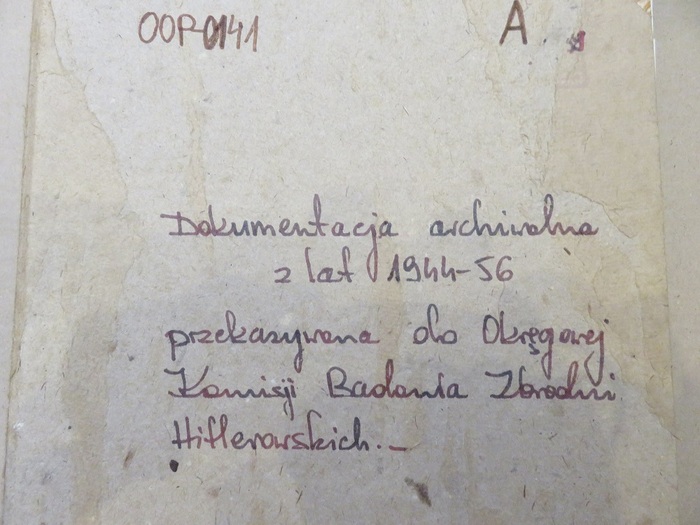 OOR 0141 A.
Dokumentacja archiwalna
z lat 1944-56
przekazywana do Okręgowej
Komisji Badania Zbrodni
Hitlerowskich.-